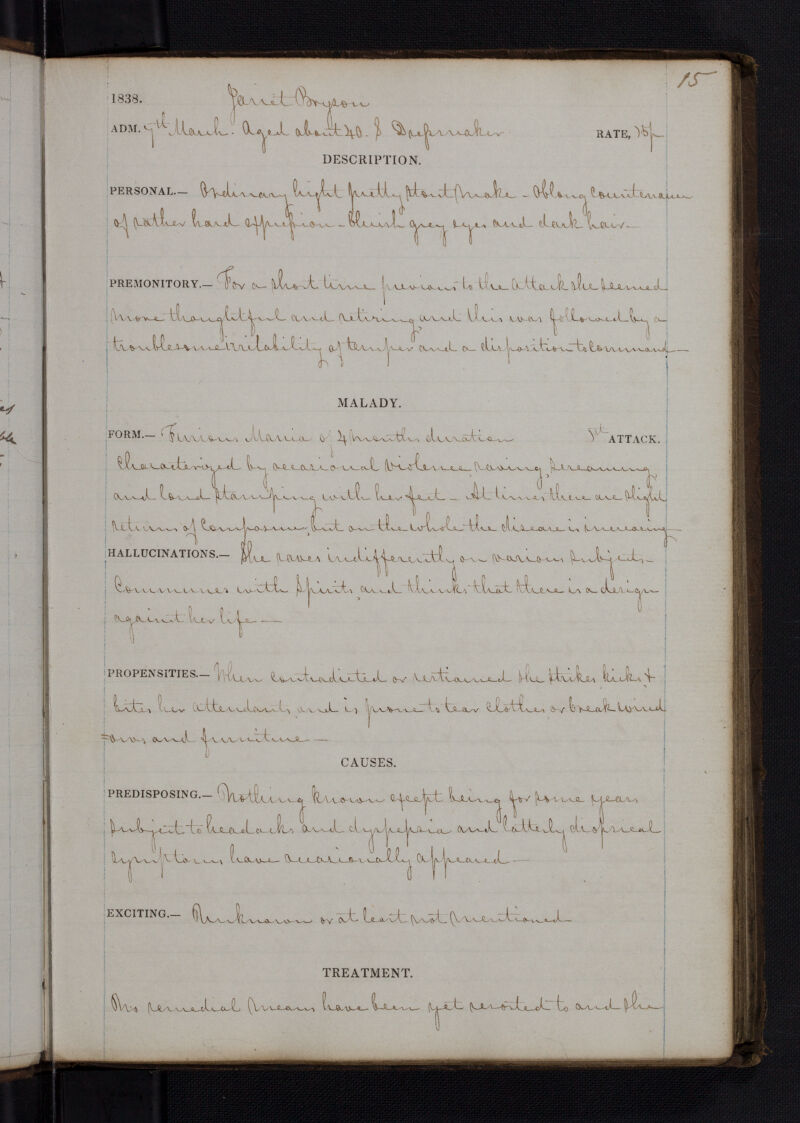 15
1838. Janet Bryson
ADM. 7th March. Aged about 40. S Dressmaker RATE,
DESCRIPTION.
PERSONAL.— Ordinary hight pretty stout make - Oblong Countenance
of rather hard expression - bluish grey eyes and dark hair -
PREMONITORY.— For a short time previous to the attack she seemed
more thoughtful and retiring and this was followed by a
troublesome irritability of temper and a disposition to command —
MALADY.
FORM.— Furious Mania of 4 months duration 1st ATTACK.
Characterized by occasional violence raving, screaming,
and loud stamping with her feet - At times there are slight
returns of Composure, but on the whole the disease is increasing
HALLUCINATIONS.— She raves indifferently on various subjects -
Communes with spirits and thinks that there is a design
against her life —
PROPENSITIES.— When contradicted or restrained she strikes kicks &
bites her attendants and is prone to tear clothes or break wind
=ows and furniture —
CAUSES.
PREDISPOSING.— Nothing known except being for some years
subject to headachs and dyspepsia and latterly dropsical
symptoms have occasionally appeared —
EXCITING.— Unknown or at least not mentioned
TREATMENT.
No remedial means have been yet resorted to and she